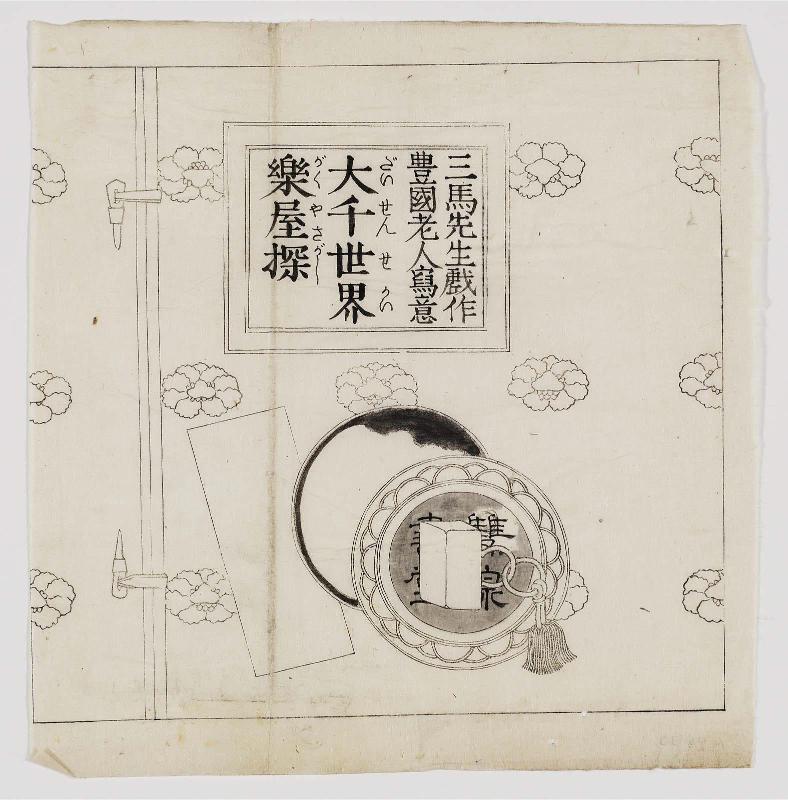 三馬先生戲作
豊國老人寫意
大千世界
だいせんせかい
樂屋探
がくやさがし
雙